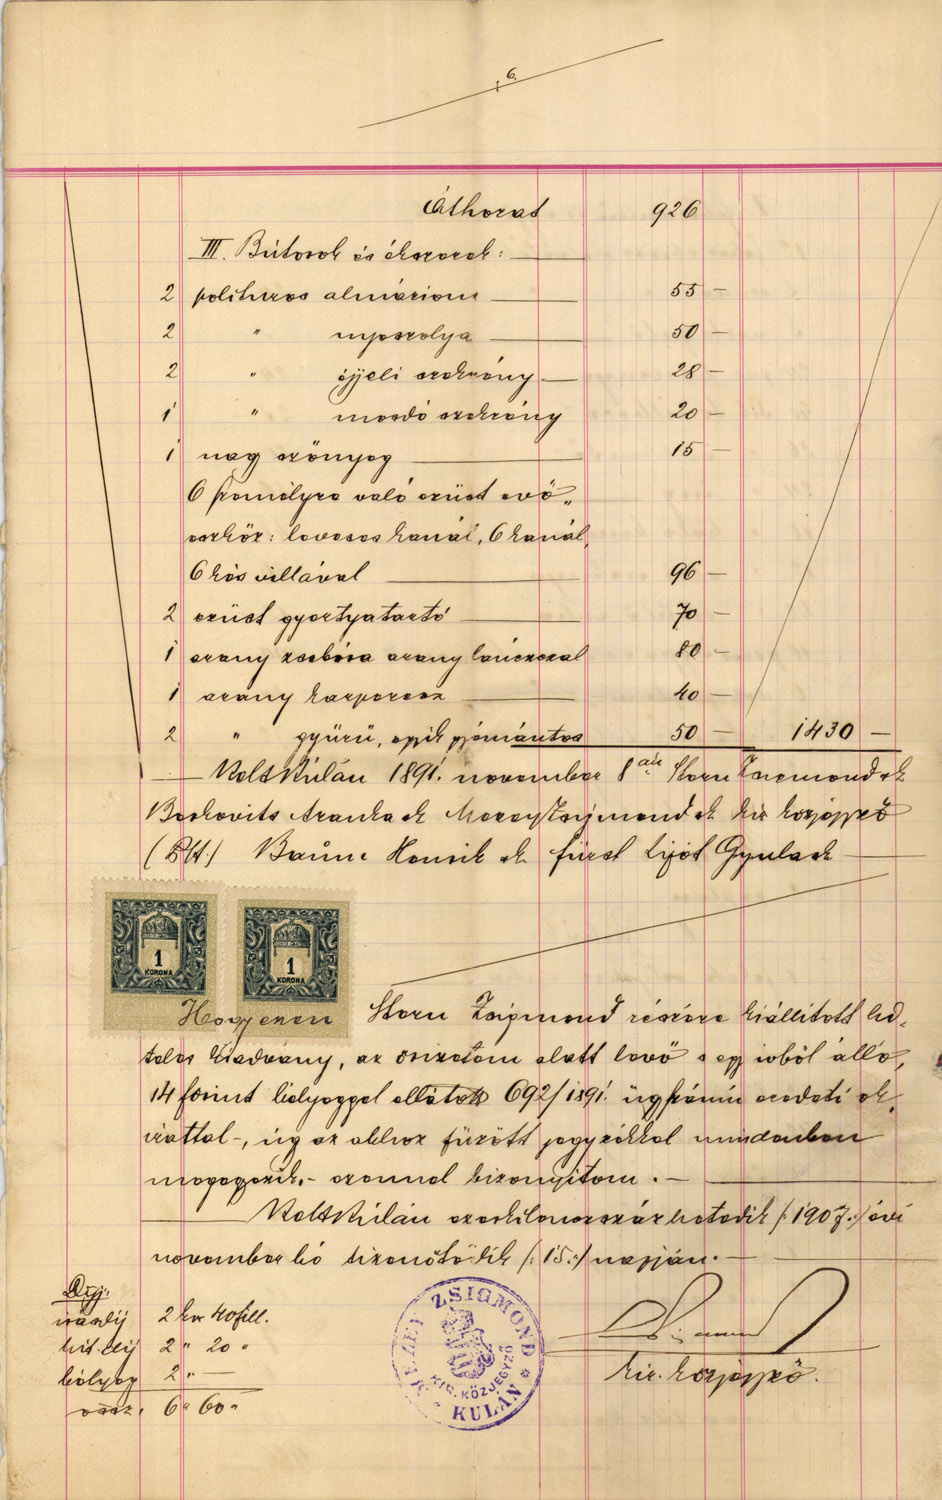 6.
Áthozat 926
III. Bútorok és ékszerek:
2 politúros almáriom 55 —
2 " nyoszolya 50 —
2 " éjjeli szekrény 28 —
1 " mosdó szekrény 20 —
1 nagy szőnyeg 15 —
6 személyre való ezüst evő-
eszköz: leveses kanál, 6 kanál,
6 kés villával 96 —
2 ezüst gyertyatartó 70 —
1 arany zsebóra arany lánczczal 80 —
1 arany karperecz 40 —
2 " gyűrű, egyik gyémántos 50 — 1430 —
Kelt Kúlán 1891. november 8 án Stern Zsigmond sk
Berkovits Aranka sk Zsigmond sk kir közjegyző
(P.H.) Baum Henrik sk fürst Lipót Gyula sk
1
KORONA
1
KORONA
Hogy ezen Stern Zsigmond részére kiállított hi-
teles kiadvány, az őrizetem alatt levő s egy ívből álló,
14 forint bélyeggel ellátott 692/1891. ügyszámú eredeti ok-
irattal-, úgy az ahhoz fűzött jegyzékkel mindenben
megegyezik.- ezennel bizonyítom.-
Kelt Kúlán ezerkilenczszázhetedik /:1907.:/ évi
november hó tizenötödik /:15.:/ napján.-
Díj:
írásdíj 2 kor 40 fill.
hit. díj 2 " 20 "
bélyeg 2 " —
össz. 6 " 60 "
ZSIGMOND
KIR. KÖZJEGYZŐ
KULÁN
kir. közjegyző.